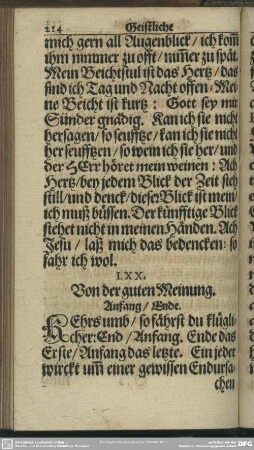 214 Geistliche
mich gern all Augenblick / ich kom̃
ihm nimmer zu offt / nim̃er zu spät.
Mein Beichtstul ist das Hertz / das
find ich Tag und Nacht offen. Mei-
ne Beicht ist kurtz: Gott sey mir
Sünder gnädig. Kan ich sie nicht
hersagen / so seufftze / kan ich sie nicht
her seufftzen / so wein ich sie her / und
der HErr höret mein weinen: Ach
Hertz / bey jedem Blick der Zeit steh
still / und denck / dieser Blick ist mein /
ich muß büssen. Der künfftige Blick
stehet nicht in meinen Händen. Ach
Jesu / laß mich das bedencken: so
fahr ich wol.
LXX.
Von der guten Meinung.
Anfang / Ende.
KEhrs umb / so fährst du klügli-
cher: End / Anfang. Ende das
Erste / Anfang das letzte. Ein jeder
wirckt um̃ einer gewissen Endursa-
chen